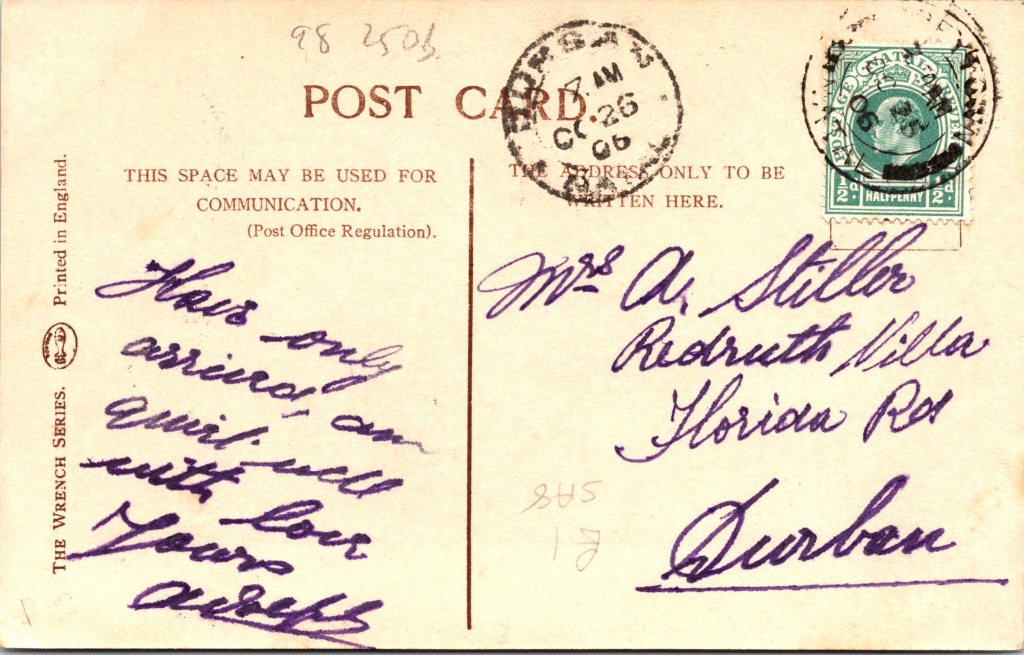 98 250
POST CARD.
DURBAN
7 AM
OC 26
06
NATAL
GREYTOWN
OC 25
06
NATAL
POSTAGE
REVENUE
½d HALFPENNY ½d
THIS SPACE MAY BE USED FOR
COMMUNICATION.
(Post Office Regulation).
THE ADDRESS ONLY TO BE
WRITTEN HERE.
Printed in England.
THE WRENCH SERIES.
Have only
arrived, am
quite well
with love
Yours
Adolph
Mrs A. Stiller
Redruth Villa
Florida Rd
Durban
SAS